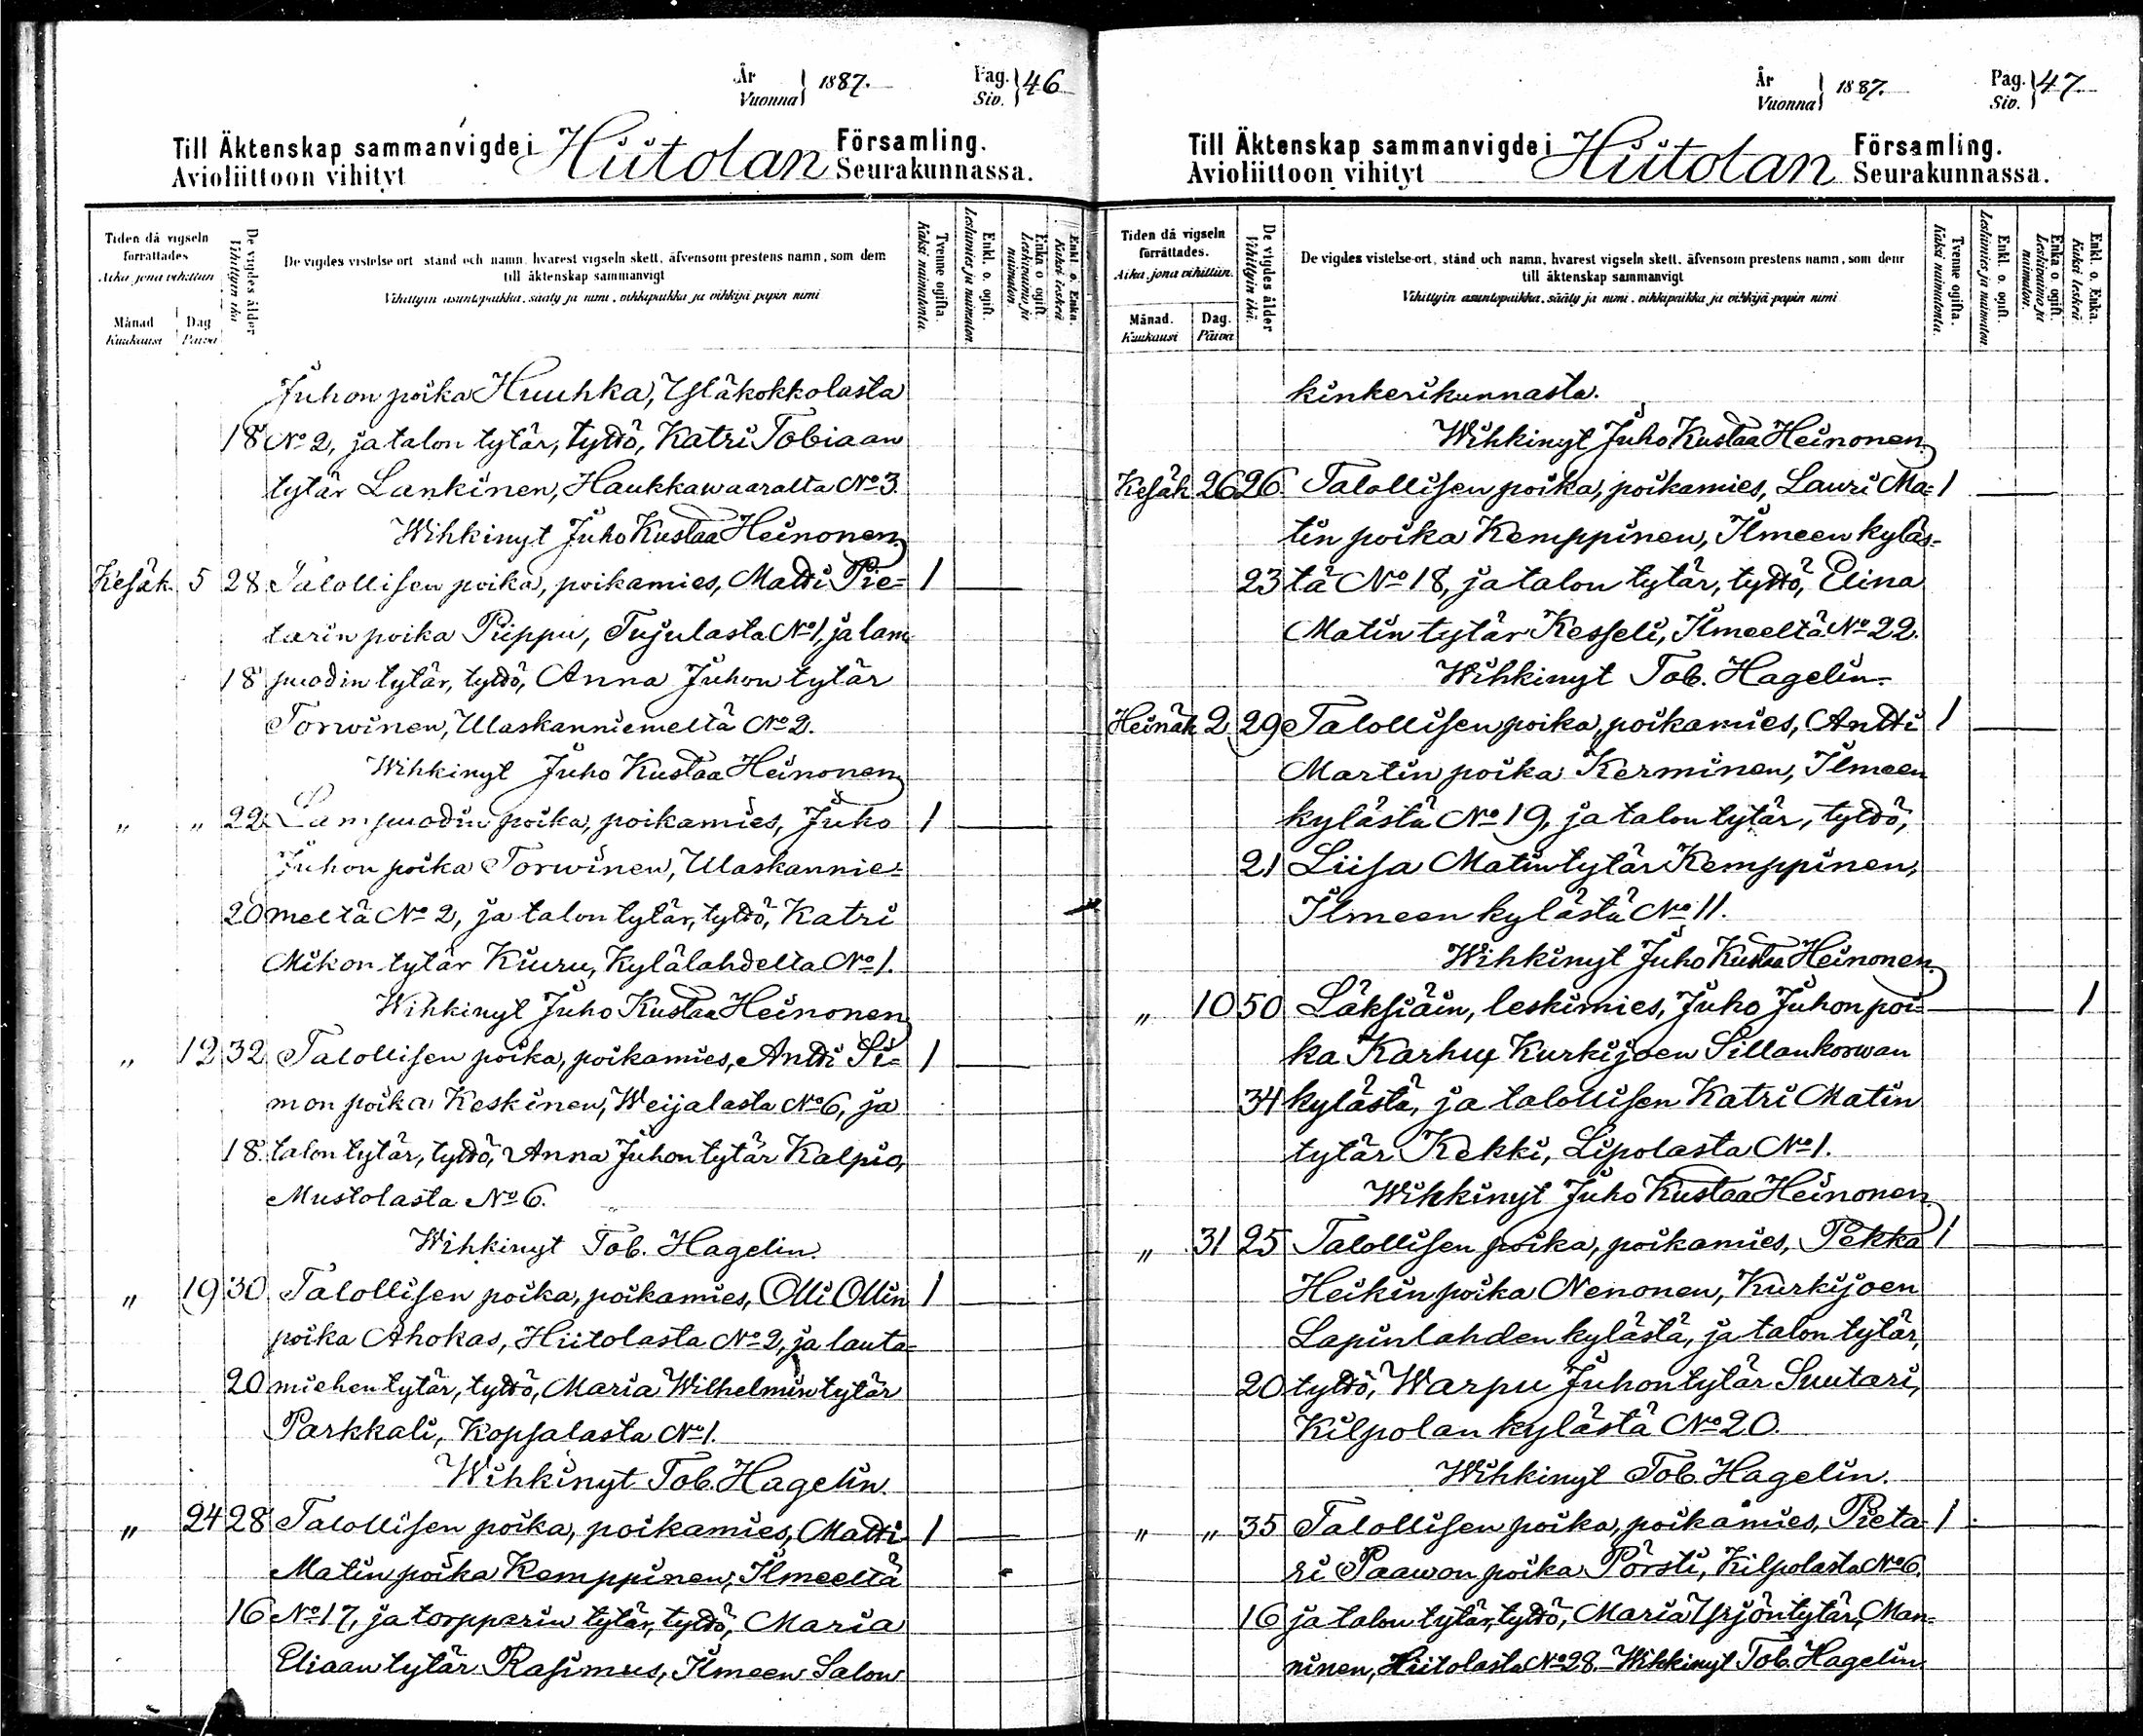 År
Vuonna
1887.
Pag.
Siv.
46
Till Äktenskap sammanvigde i Hiitolan Församling.
Avioliittoon vihityt Seurakunnassa.
Tiden då vigseln förrättades
Aika jona vihittiin
Månad
Kuukausi
Dag
Päivä
De vigdes ålder
Vihittyin ikä
De vigdes vistelse ort stånd och namn, hvarest vigseln skett, äfvensom prestens namn, som dem
till äktenskap sammanvigt
Vihittyin asuntopaikka, sääty ja nimi, vihkipaikka ja vihkijä papin nimi
Tvenne ogifta.
Kaksi naimatonta.
Enkl. o. ogift.
Leskimies ja naimaton.
Enka o. ogift.
Leskivaimo ja naimaton
Enkl. o. Enka.
Kaksi leskeä
Juhon poika Huuhka, Yläkokkolasta
18 No 2, ja talon tytär, tyttö, Katri Tobiaan
tytär Lankinen, Haukkawaaralta No 3.
Wihkinyt Juho Kustaa Heinonen.
Kesäk. 5 28 Talollisen poika, poikamies, Matti Pie= 1
tarin poika Piippu, Tujulasta No 1, ja lam
18 puodin tytär, tyttö, Anna Juhon tytär
Torwinen, Ulaskanniemeltä No 2.
Wihkinyt Juho Kustaa Heinonen
" " 22 Lampuodin poika, poikamies, Juho 1
Juhon poika Torwinen, Ulaskannie=
20 meltä No 2, ja talon tytär, tyttö, Katri
Mikon tytär Kiuru, Kylälahdelta No 1.
Wihkinyt Juho Kustaa Heinonen
" 12 32 Talollisen poika, poikamies, Antti Si= 1
mon poika Keskinen, Weijalasta No 6, ja
18. talon tytär, tyttö, Anna Juhon tytär Kalpio,
Mustolasta No 6.
Wihkinyt Tob. Hagelin.
" 19 30 Talollisen poika, poikamies, Olli Ollin 1
poika Ahokas, Hiitolasta No 2, ja lauta=
20 miehen tytär, tyttö, Maria Wilhelmin tytär
Parkkali, Kopsalasta No 1.
Wihkinyt Tob. Hagelin.
" 24 28 Talollisen poika, poikamies, Matti 1
Matin poika Kemppinen, Ilmeeltä
16 No 17, ja torpparin tytär, tyttö, Maria
Eliaan tytär Rasimus, Ilmeen Salon
År
Vuonna
1887.
Pag.
Siv.
47
Till Äktenskap sammanvigde i Hiitolan Församling.
Avioliittoon vihityt Seurakunnassa.
Tiden då vigseln förrättades.
Aika, jona vihittiin.
Månad.
Kuukausi
Dag.
Päivä
De vigdes ålder
Vihittyin ikä.
De vigdes vistelse-ort, stånd och namn, hvarest vigseln skett, äfvensom prestens namn, som dem
till äktenskap sammanvigt
Vihittyin asuntopaikka, sääty ja nimi, vihkipaikka ja vihkijä papin nimi
Tvenne ogifta.
Kaksi naimatonta.
Enkl. o. ogift.
Leskimies ja naimaton.
Enka o. ogift.
Leskivaimo ja naimaton.
Enkl. o. Enka.
Kaksi leskeä
kinkerikunnasta.
Wihkinyt Juho Kustaa Heinonen
Kesäk 26 26 Talollisen poika, poikamies, Lauri Ma= 1
tin poika Kemppinen, Ilmeen kyläs=
23 tä No 18, ja talon tytär, tyttö, Elina
Matin tytär Kesseli, Ilmeeltä No 22.
Wihkinyt Tob. Hagelin.
Heinäk 2 29 Talollisen poika, poikamies, Antti 1
Martin poika Kerminen, Ilmeen
kylästä No 19, ja talon tytär, tyttö,
21 Liisa Matin tytär Kemppinen,
Ilmeen kylästä No 11.
Wihkinyt Juho Kustaa Heinonen.
" 10 50 Läksiäin, leskimies, Juho Juhon poi= 1
ka Karhu, Kurkijoen Sillankorwan
34 kylästä, ja talollisen Katri Matin
tytär Kekki, Lipolasta No 1.
Wihkinyt Juho Kustaa Heinonen
" 31 25 Talollisen poika, poikamies, Pekka 1
Heikin poika Nenonen, Kurkijoen
Lapinlahden kylästä, ja talon tytär,
20 tyttö, Warpu Juhon tytär Suutari,
Kilpolan kylästä No 20.
Wihkinyt Tob. Hagelin.
" " 35 Talollisen poika, poikamies, Pieta= 1
ri Paawon poika Pörsti, Kilpolasta No 6.
16 ja talon tytär, tyttö, Maria Yrjön tytär, Man=
ninen, Hiitolasta No 28. Wihkinyt Tob. Hagelin.